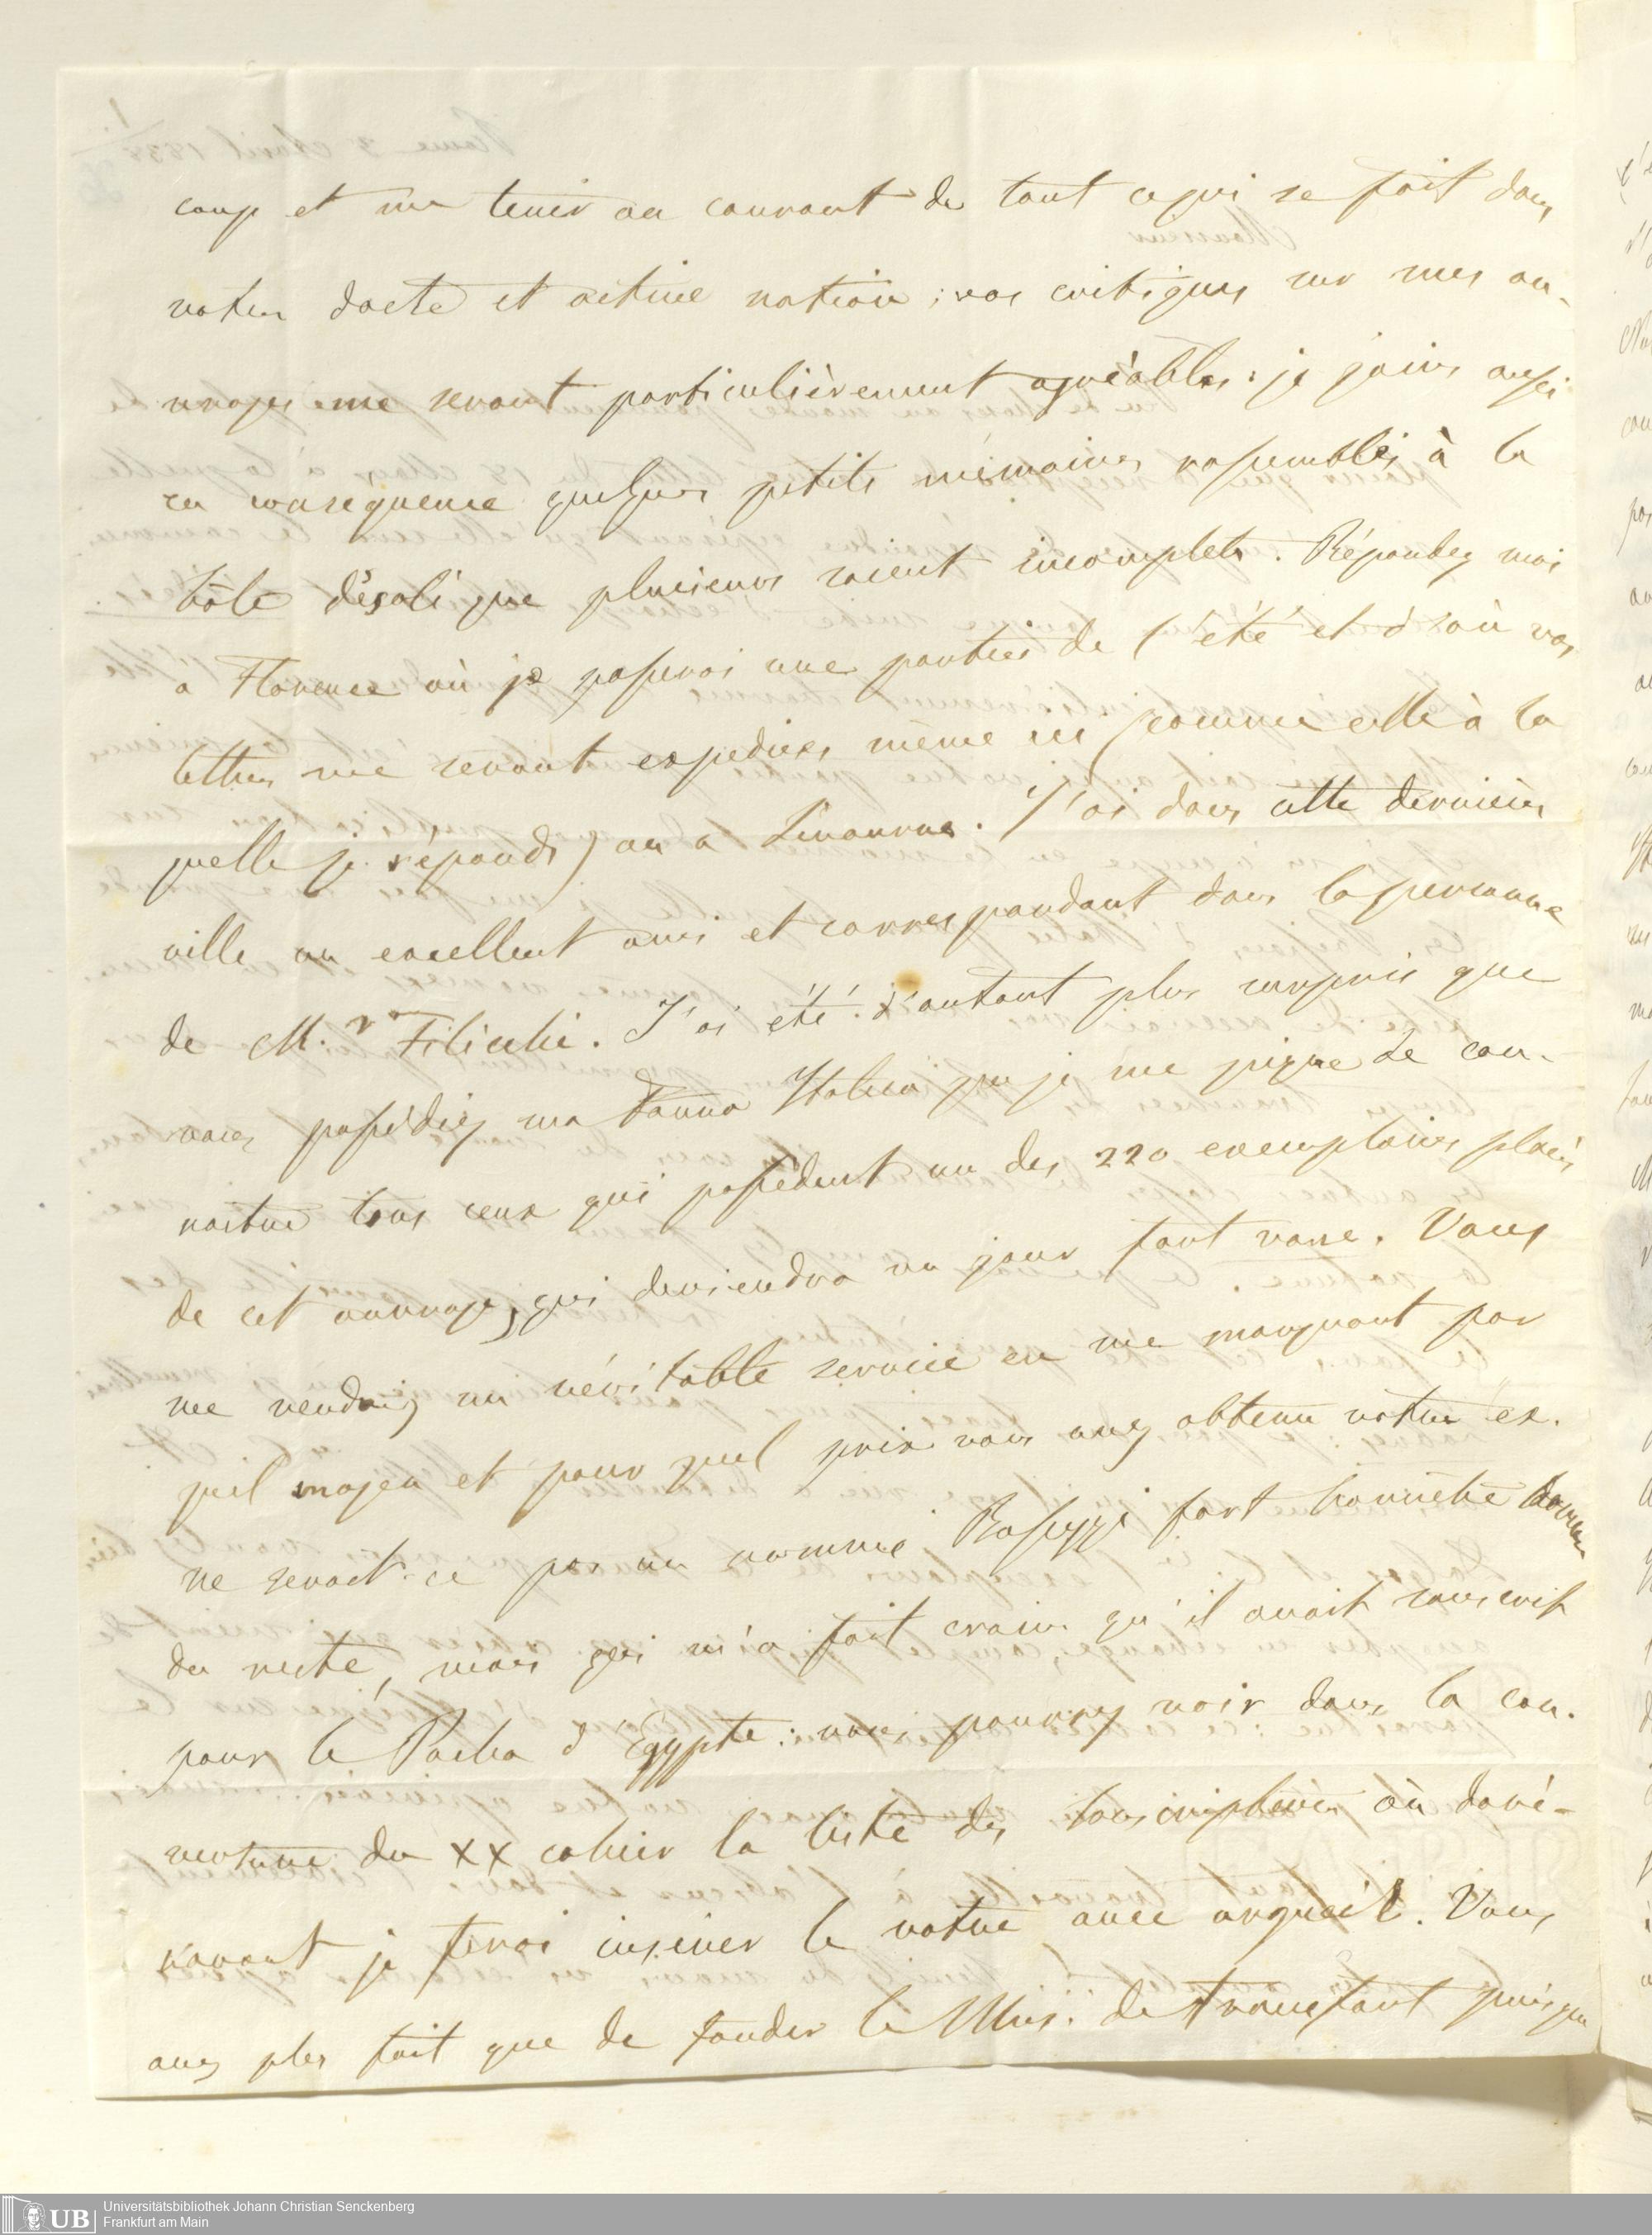 coup et me tenir au courant de tout ce qui se fait dans
votre docte et active nation ; vos critiques sur mes ou-
vrages me seront particulièrement agréables : je joins aussi
en consequence quelques petits mémoires rassemblés à la
hâte désolé que plusieurs soient incomplets. Répondez moi
a Florence où je passerai une partie de l'été et d'où vos
lettres me seront expediées même ici (comme celle à la
quelle je réponds) ou a Livourne. J'ai dans cette derniere
ville un excellent ami et correspondant dans la personne
de M.r Filicchi. J'ai été d'autant plus surpris que
vous possédiez ma Fauna Italica que je me pique de con-
naitre tous ceux qui possèdent un des 220 exemplaires placés
de cet ouvrage, qui deviendra un jour fort rare. Vous
me rendriez un véritable service en me marquant par
quel moyen et pour quel prix vous avez obtenu votre ex.
ne serait-ce pas un nommé Raseggi fort honnête homme
du reste, mais qui m'a fait croire qu'il avait souscrit
pour le Pacha d'Egypte : vous pourrez voir dans la cou-
verture du XX cahier la liste des souscripteurs où doré-
navant je ferai inserer le votre avec orgueil. Vous
avez plus fait que de fonder le Mus. de Francfort puisque
Rome 3 Avril 1838
Monsieur
UB Universitätsbibliothek Johann Christian Senckenberg
Frankfurt am Main